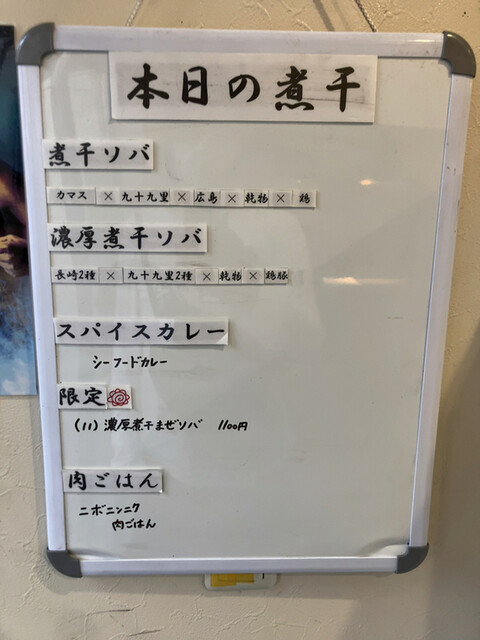 本日の煮干
煮干ソバ
カマス × 九十九里 × 広島 × 乾物 × 鶏
濃厚煮干ソバ
長崎2種 × 九十九里2種 × 乾物 × 鶏豚
スパイスカレー
シーフードカレー
限定
(11) 濃厚煮干まぜソバ 1100円
肉ごはん
ニボニンニク
肉ごはん